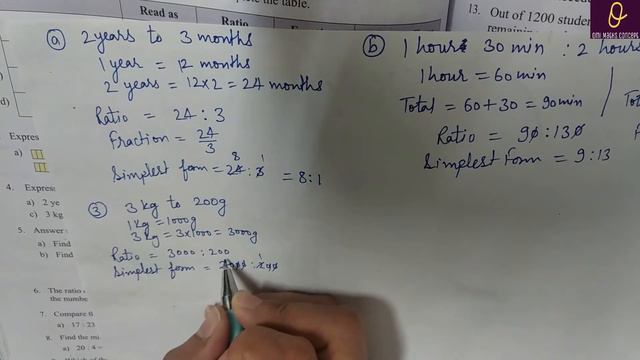 the table.
Read as
Ratio
13. Out of 1200 studen
remaining
OMI MATHS CONCEPT
(a) 2 years to 3 months
1 year = 12 months
2 years = 12×2 = 24 months
Ratio = 24 : 3
Fraction = 24/3
Simplest form = 24 8 : 3 1 = 8:1
(b) 1 hour 30 min : 2 hours
1 hour = 60 min
Total = 60+30 = 90 min
Ratio = 90 : 130
Simplest Form = 9:13
(3) 3 kg to 200g
1 kg = 1000g
3 kg = 3×1000 = 3000g
Ratio = 3000 : 200
Simplest form =
d)
3. Expres
a)
4. Express
a) 2 ye
c) 3 kg
5. Answer
a) Find
b) Find
6. The ratio
the numbe
7. Compare
a) 17 : 23
8. Find the mi
a) 20 : 4